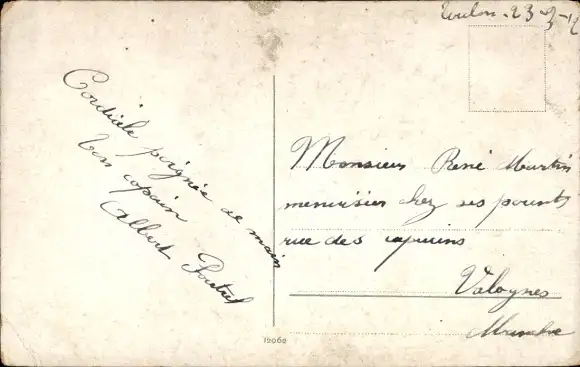 Toulon. 23-3-12
Cordiale poignée de main
ton copain
Albert
Monsieur René Martin
menuisier chez ses parents
rue des capucins
Valognes
Manche
19062